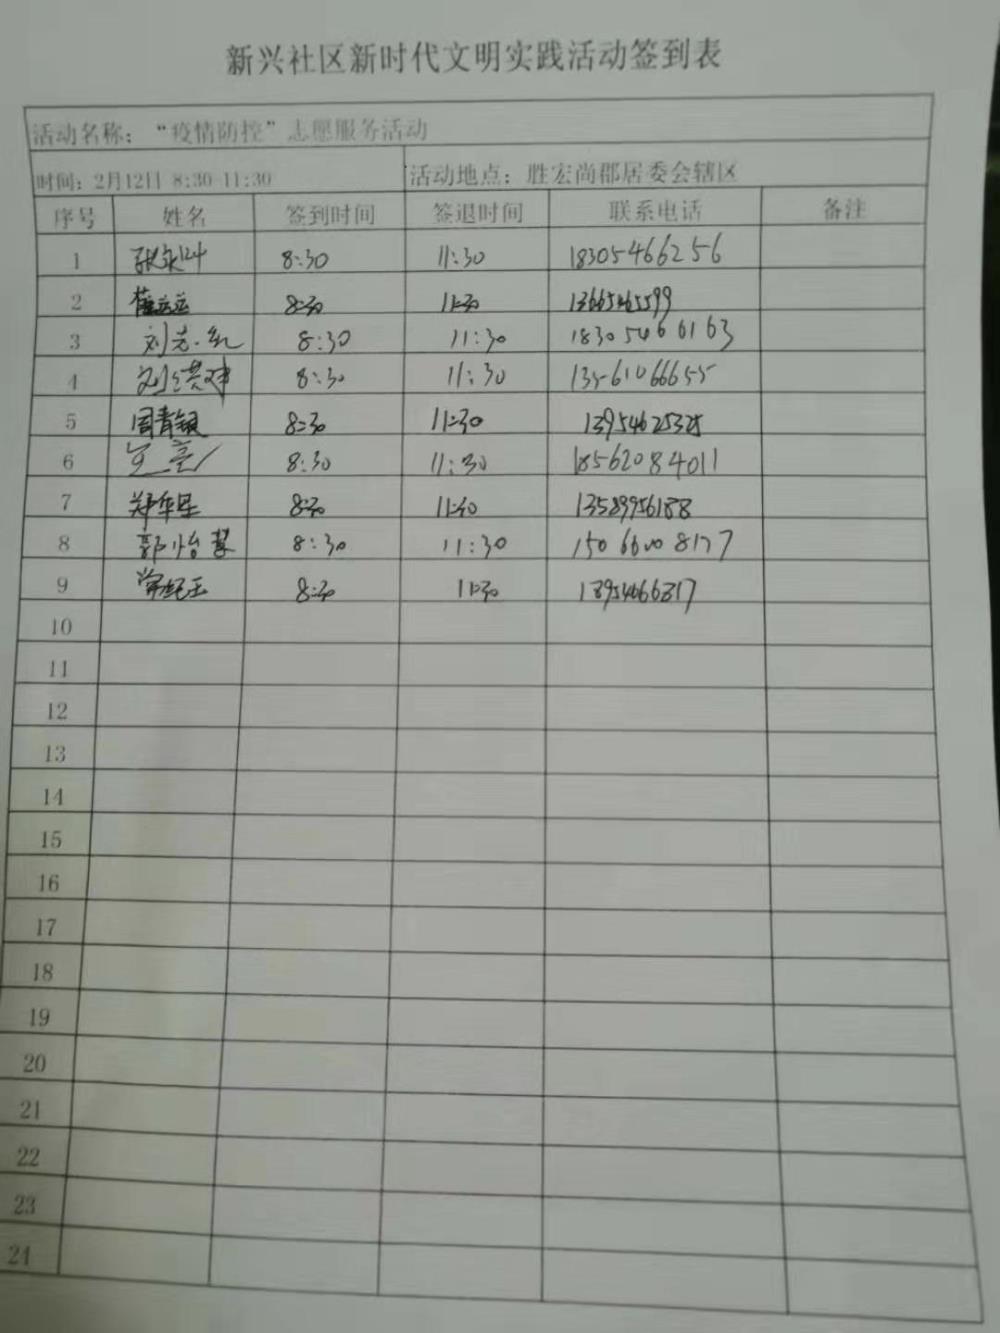 新兴社区新时代文明实践活动签到表
活动名称：“疫情防控”志愿服务活动
时间：2月12日 8:30-11:30 活动地点：胜宏尚郡居委会辖区
序号 姓名 签到时间 签退时间 联系电话 备注
1 8:30 11:30 18305466256
2 8:30 11:30 13665465599
3 刘志红 8:30 11:30 18305466163
4 刘洪建 8:30 11:30 13561066655
5 周青银 8:30 11:30 13954625325
6 8:30 11:30 18562084011
7 郑华星 8:30 11:30 13589956188
8 郭怡慧 8:30 11:30 15066008177
9 8:30 11:30 13954666317
10
11
12
13
14
15
16
17
18
19
20
21
22
23
24